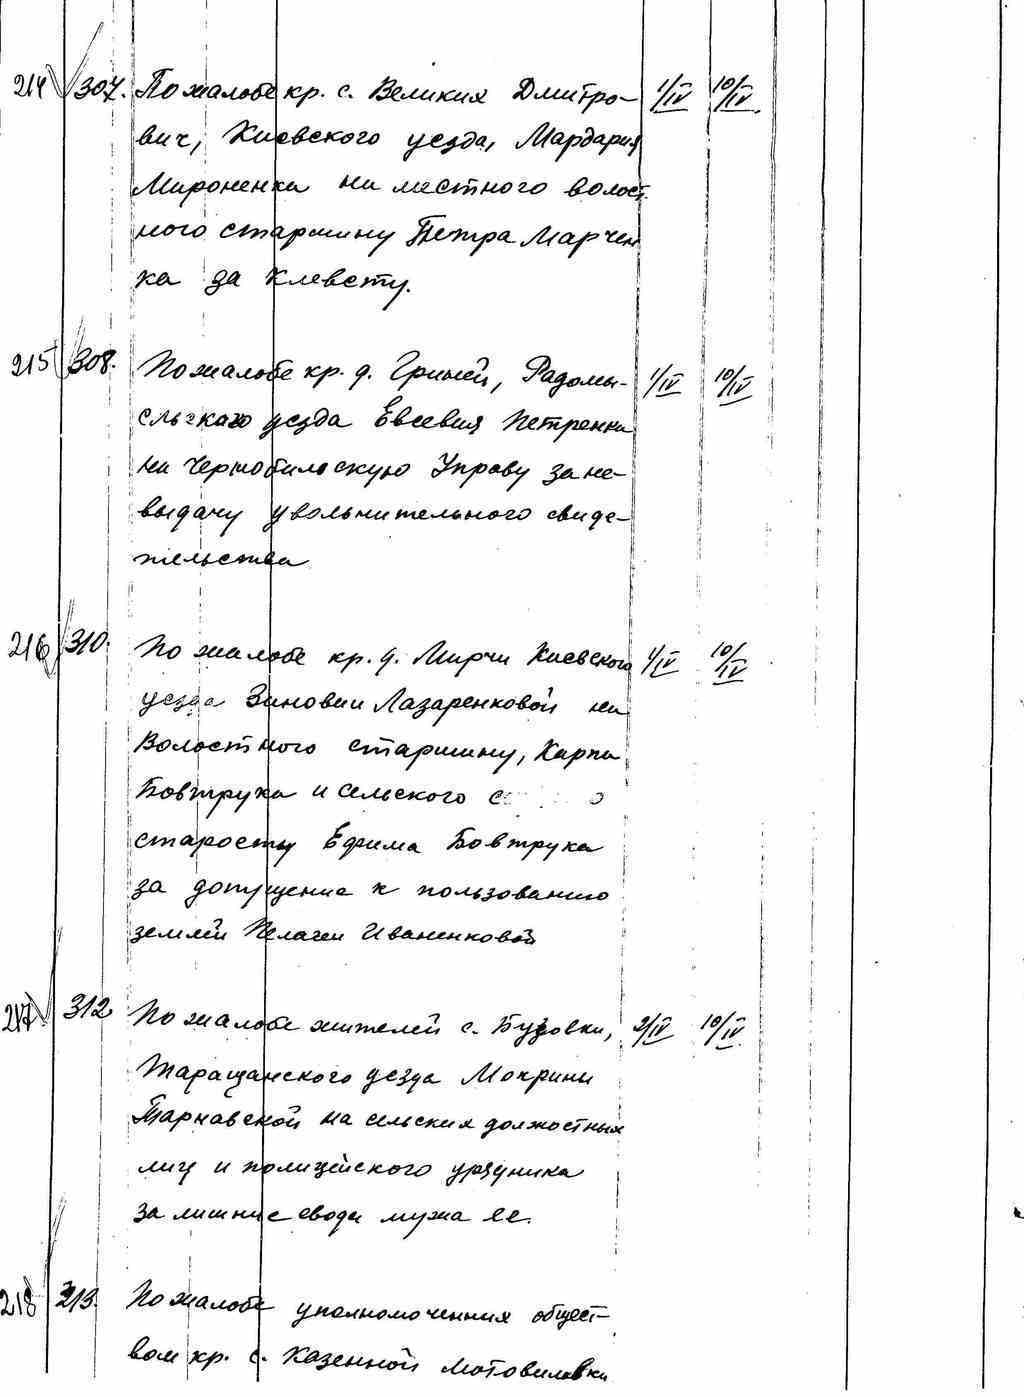 214 307. По жалобе кр. с. Великия Дмитро- 1/IV 10/IV.
вич, Киевского уезда, Мардария
Мироненка на местного волост.
ного старшину Петра Марчен
ка за клевету.
215 308. По жалобе кр. д. Гриней, Радомы- 1/IV 10/IV
сльского уезда Евсевия Петренка
на Чернобильскую Управу за не-
выдачу увольнительного свиде-
тельства
216 310. По жалобе кр. д. Мирчи Киевского 1/IV 10/IV
уезда Зиновии Лазаренковой на
Волостного старшину, Карпа
Бовтрука и сельского
старосты Ефима Бовтрука
за допущение к пользованию
землей Пелагеи Иваненковой
217 312 По жалобе жителей с. Бузовки, 2/IV 10/IV.
Таращанского уезда Мокрини
Тарнавской на сельских должностных
лиц и полицейского урядника
за мужа ее.
218 313. По жалобе уполномоченния общест-
вом кр. с. Казенной Мотовиловки